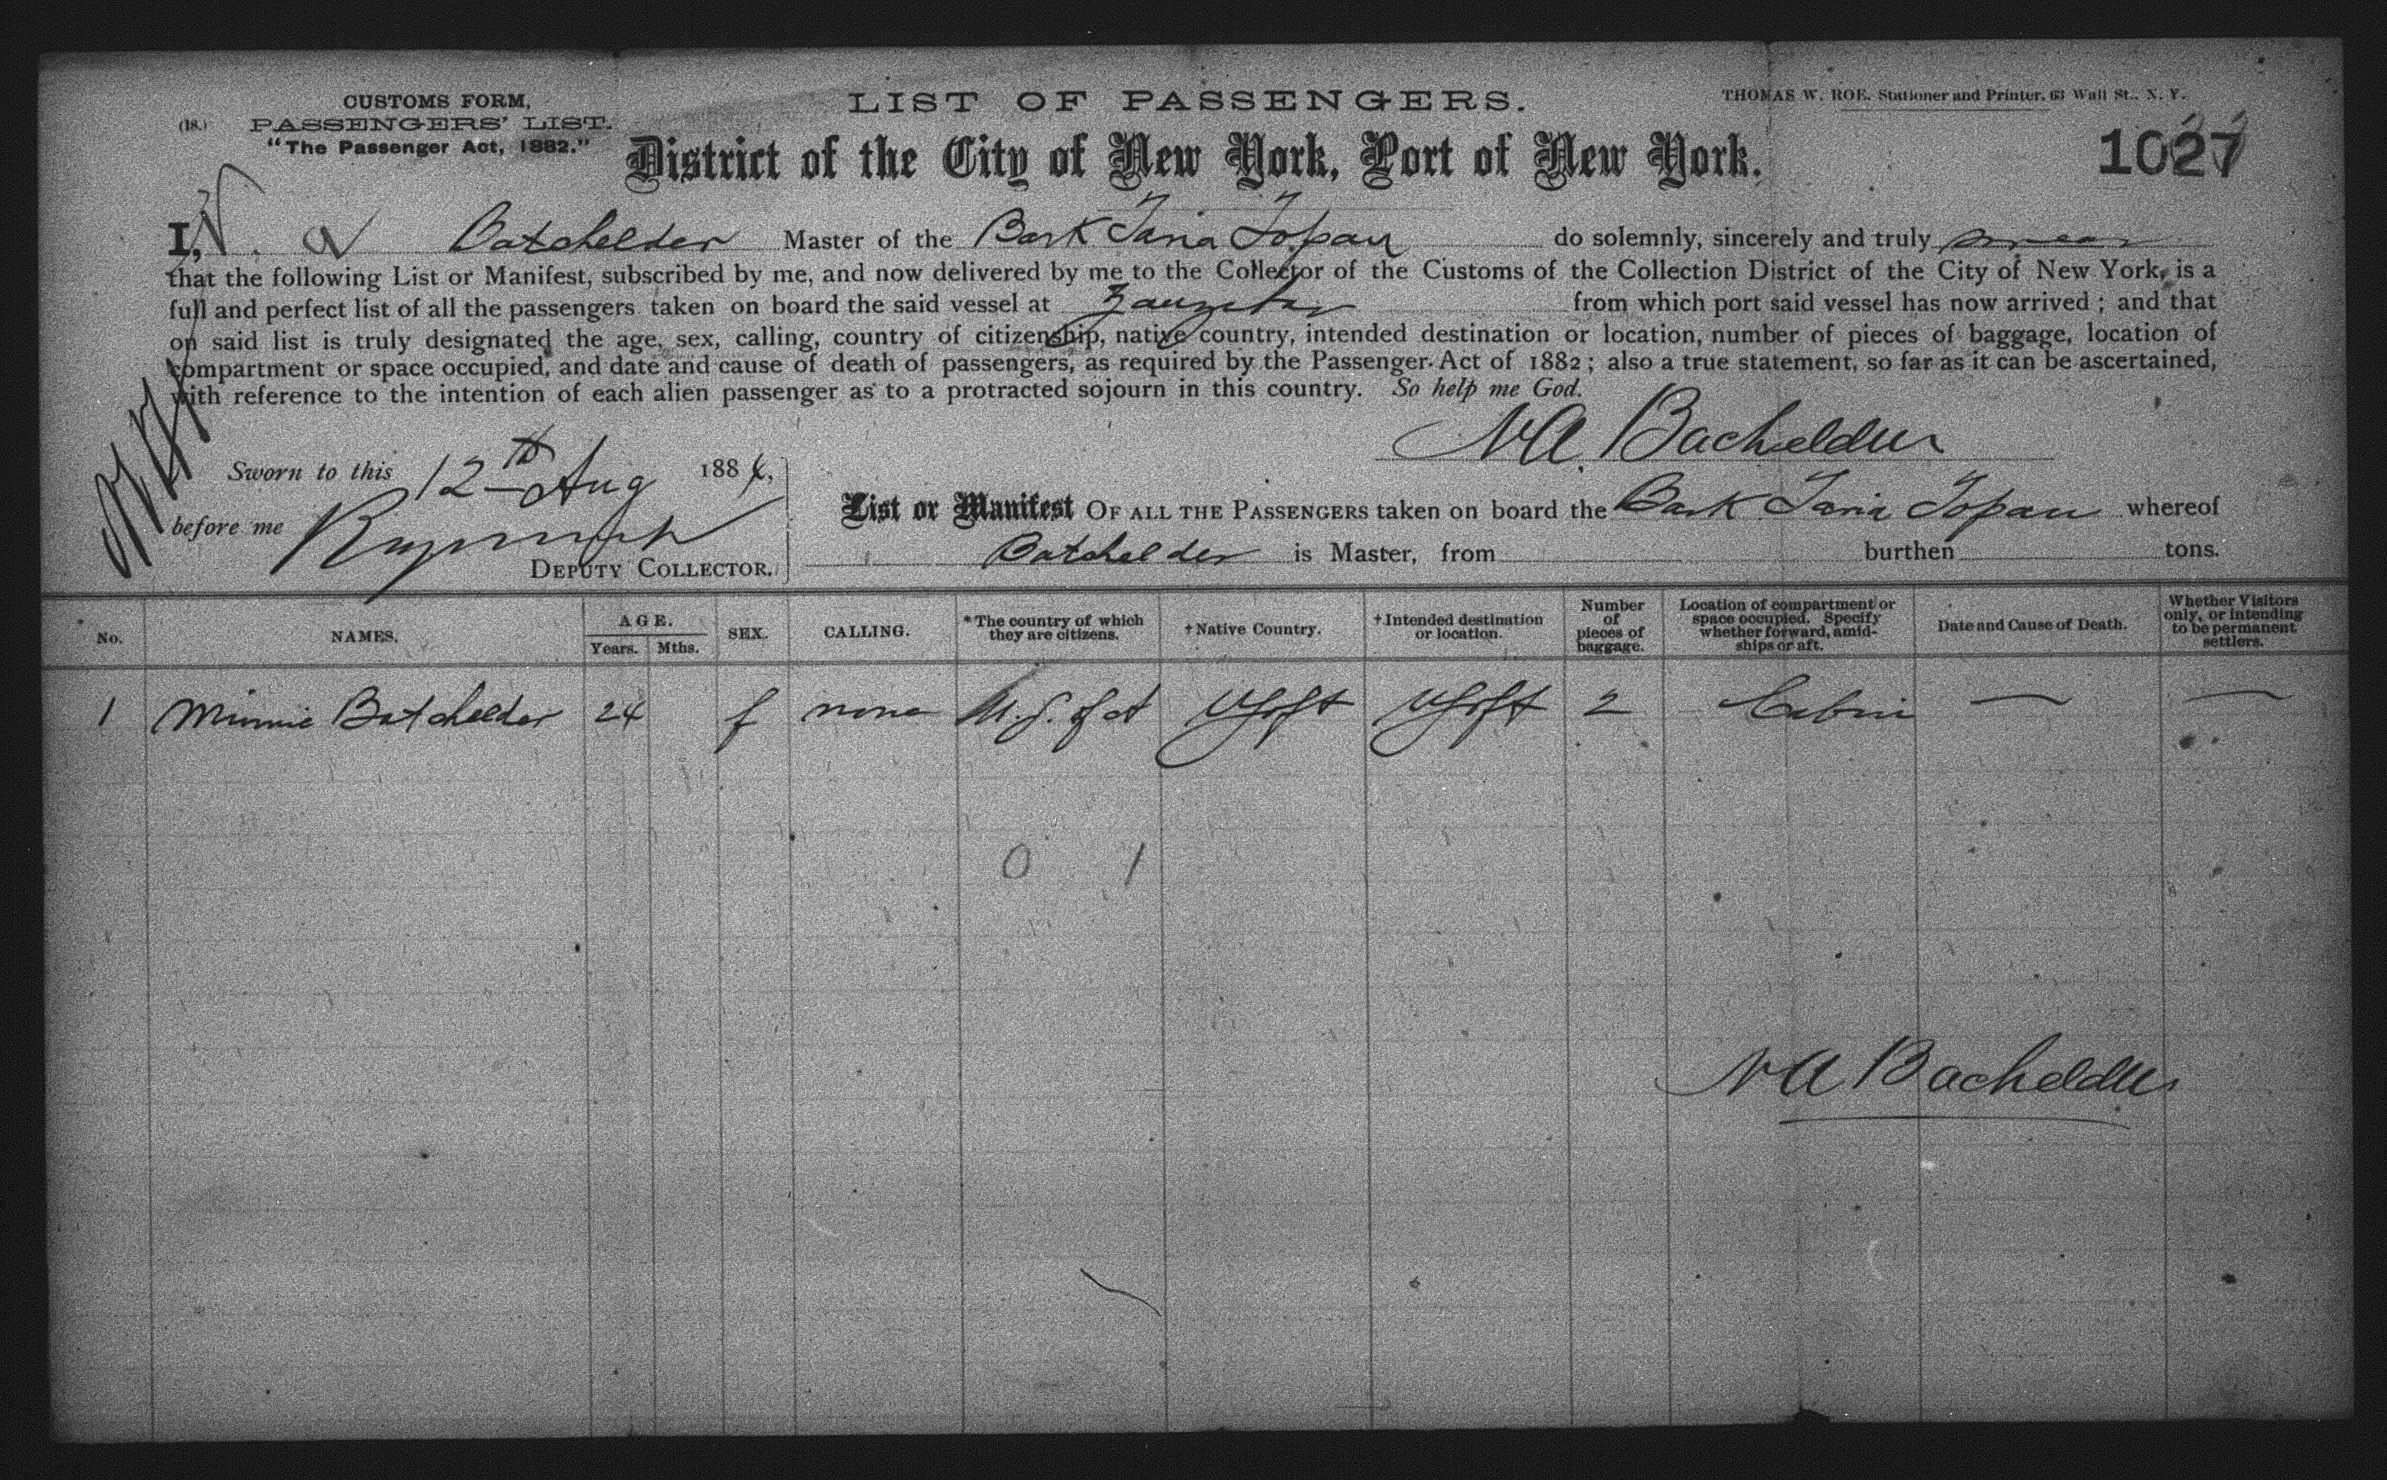 CUSTOMS FORM,
(18.) PASSENGERS' LIST.
"The Passenger Act, 1882."
LIST OF PASSENGERS.
THOMAS W. ROE, Stationer and Printer, 63 Wall St., N. Y.
District of the City of New York, Port of New York.
1027
I, N. A Batchelder Master of the Bark Taria Topan do solemnly, sincerely and truly swear
that the following List or Manifest, subscribed by me, and now delivered by me to the Collector of the Customs of the Collection District of the City of New York, is a
full and perfect list of all the passengers taken on board the said vessel at Zanzibar from which port said vessel has now arrived; and that
on said list is truly designated the age, sex, calling, country of citizenship, native country, intended destination or location, number of pieces of baggage, location of
compartment or space occupied, and date and cause of death of passengers, as required by the Passenger Act of 1882; also a true statement, so far as it can be ascertained,
with reference to the intention of each alien passenger as to a protracted sojourn in this country. So help me God.
N A. Bachelder
Sworn to this 12th Aug 1884,
before me
DEPUTY COLLECTOR.
List or Manifest OF ALL THE PASSENGERS taken on board the Bark Taria Topan whereof
Batchelder is Master, from burthen tons.
No. NAMES. AGE. Years. Mths. SEX. CALLING. *The country of which they are citizens. †Native Country. †Intended destination or location. Number of pieces of baggage. Location of compartment or space occupied. Specify whether forward, amidships or aft. Date and Cause of Death. Whether Visitors only, or intending to be permanent settlers.
1 Minnie Batchelder 24 f none U.S. of A U S of A U S of A 2 Cabin — —
0 1
N A Bachelder